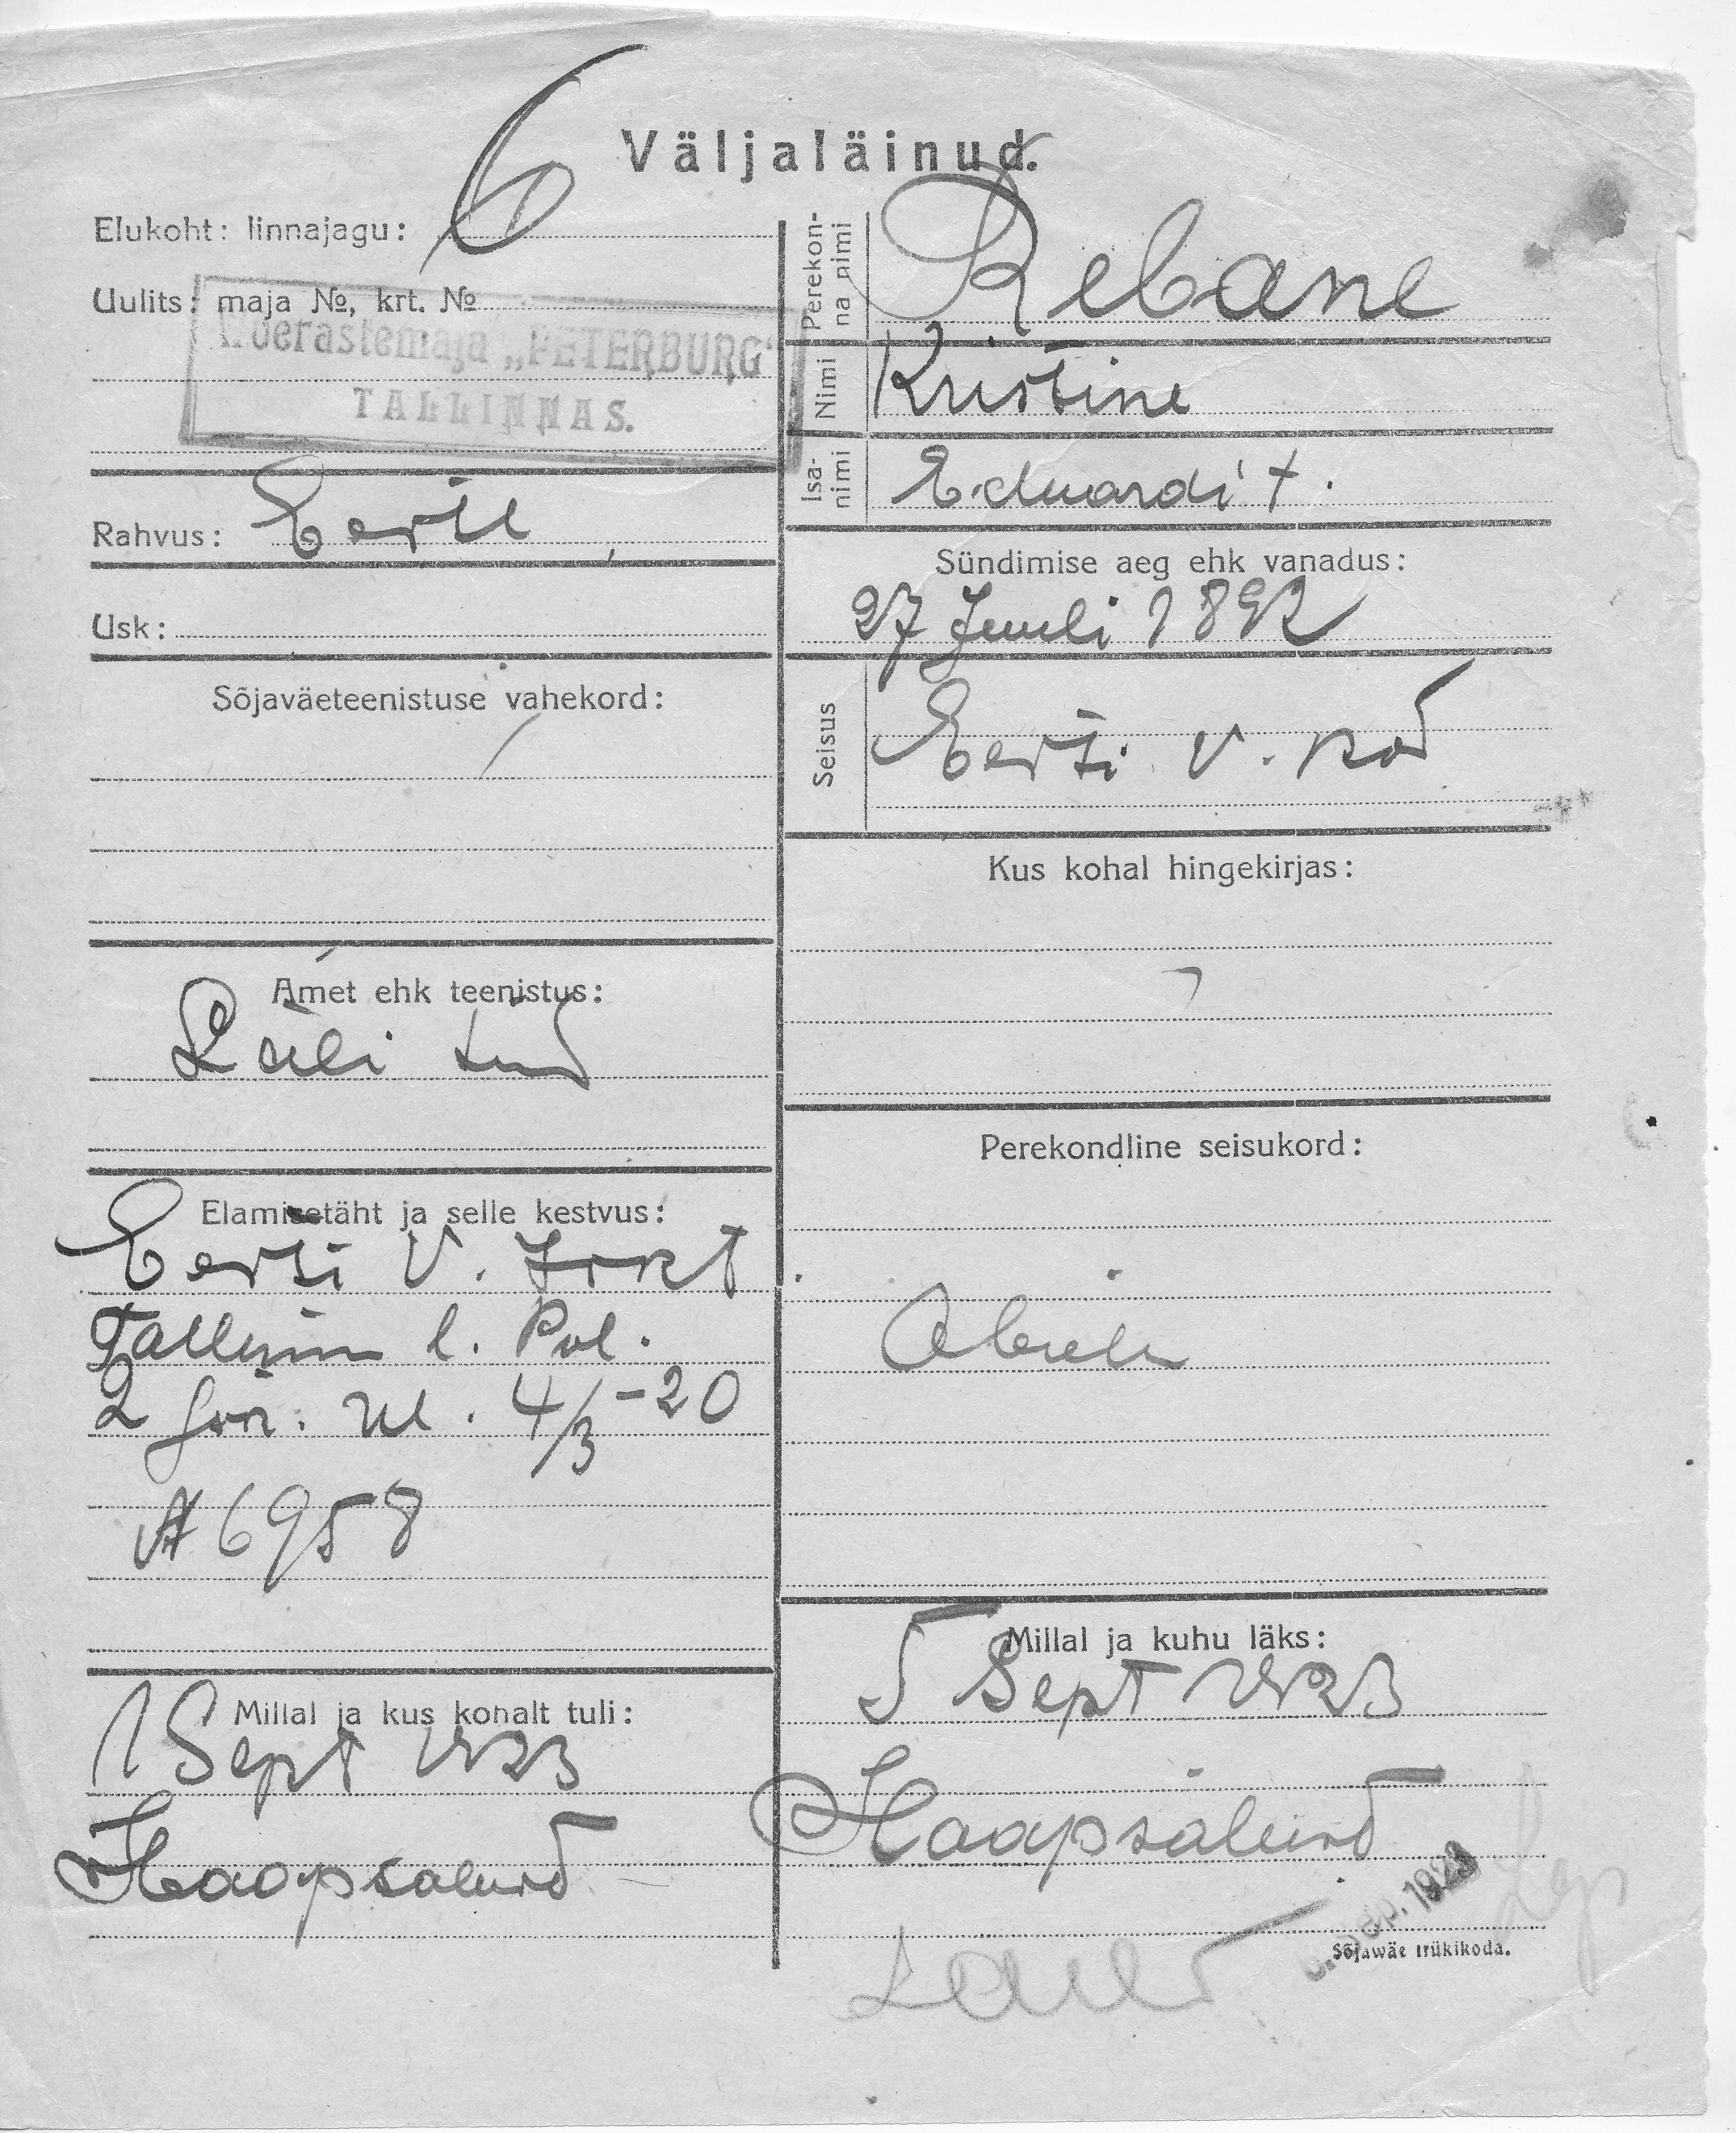 Väljaläinud.
Elukoht: linnajagu: 6
Uulits: maja №, krt. №
Võerastemaja „PETERBURG“
TALLINNAS.
Rahvus: Eesti
Usk:
Sõjaväeteenistuse vahekord:
Amet ehk teenistus:
Käsi tööd
Elamisetäht ja selle kestvus:
Eesti V. Iskt
Tallinna l. Pol.
2 jsk. 4/3-20
№ 6958
Millal ja kus kohalt tuli:
1 Sept 1923
Haapsalust
Perekonna nimi
Rebane
Nimi
Kristine
Isanimi
Eduardi t.
Sündimise aeg ehk vanadus:
27 Juuli 1892
Seisus
Eesti v. kod
Kus kohal hingekirjas:
Perekondline seisukord:
Abielu
Millal ja kuhu läks:
5 Sept 1923
Haapsalusse
Sep. 1923
Sõjawäe trükikoda.